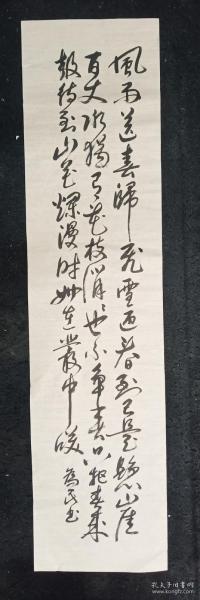 風雨送春歸飛雪迎春到已是懸崖
百丈冰猶有花枝俏俏也不爭春只把春來
報待到山花爛漫時她在叢中笑 為民书
孔夫子旧书网